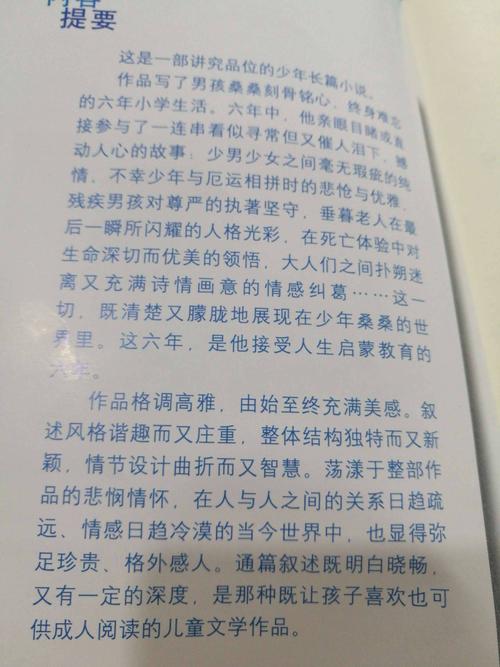 内容
提要
这是一部讲究品位的少年长篇小说。
作品写了男孩桑桑刻骨铭心、终身难忘
的六年小学生活。六年中，他亲眼目睹或直
接参与了一连串看似寻常但又催人泪下、撼
动人心的故事：少男少女之间毫无瑕疵的纯
情，不幸少年与厄运相拼时的悲怆与优雅，
残疾男孩对尊严的执著坚守，垂暮老人在最
后一瞬所闪耀的人格光彩，在死亡体验中对
生命深切而优美的领悟，大人们之间扑朔迷
离又充满诗情画意的情感纠葛……这一
切，既清楚又朦胧地展现在少年桑桑的世
界里。这六年，是他接受人生启蒙教育的
六年。
作品格调高雅，由始至终充满美感。叙
述风格谐趣而又庄重，整体结构独特而又新
颖，情节设计曲折而又智慧。荡漾于整部作
品的悲悯情怀，在人与人之间的关系日趋疏
远、情感日趋冷漠的当今世界中，也显得弥
足珍贵、格外感人。通篇叙述既明白晓畅，
又有一定的深度，是那种既让孩子喜欢也可
供成人阅读的儿童文学作品。